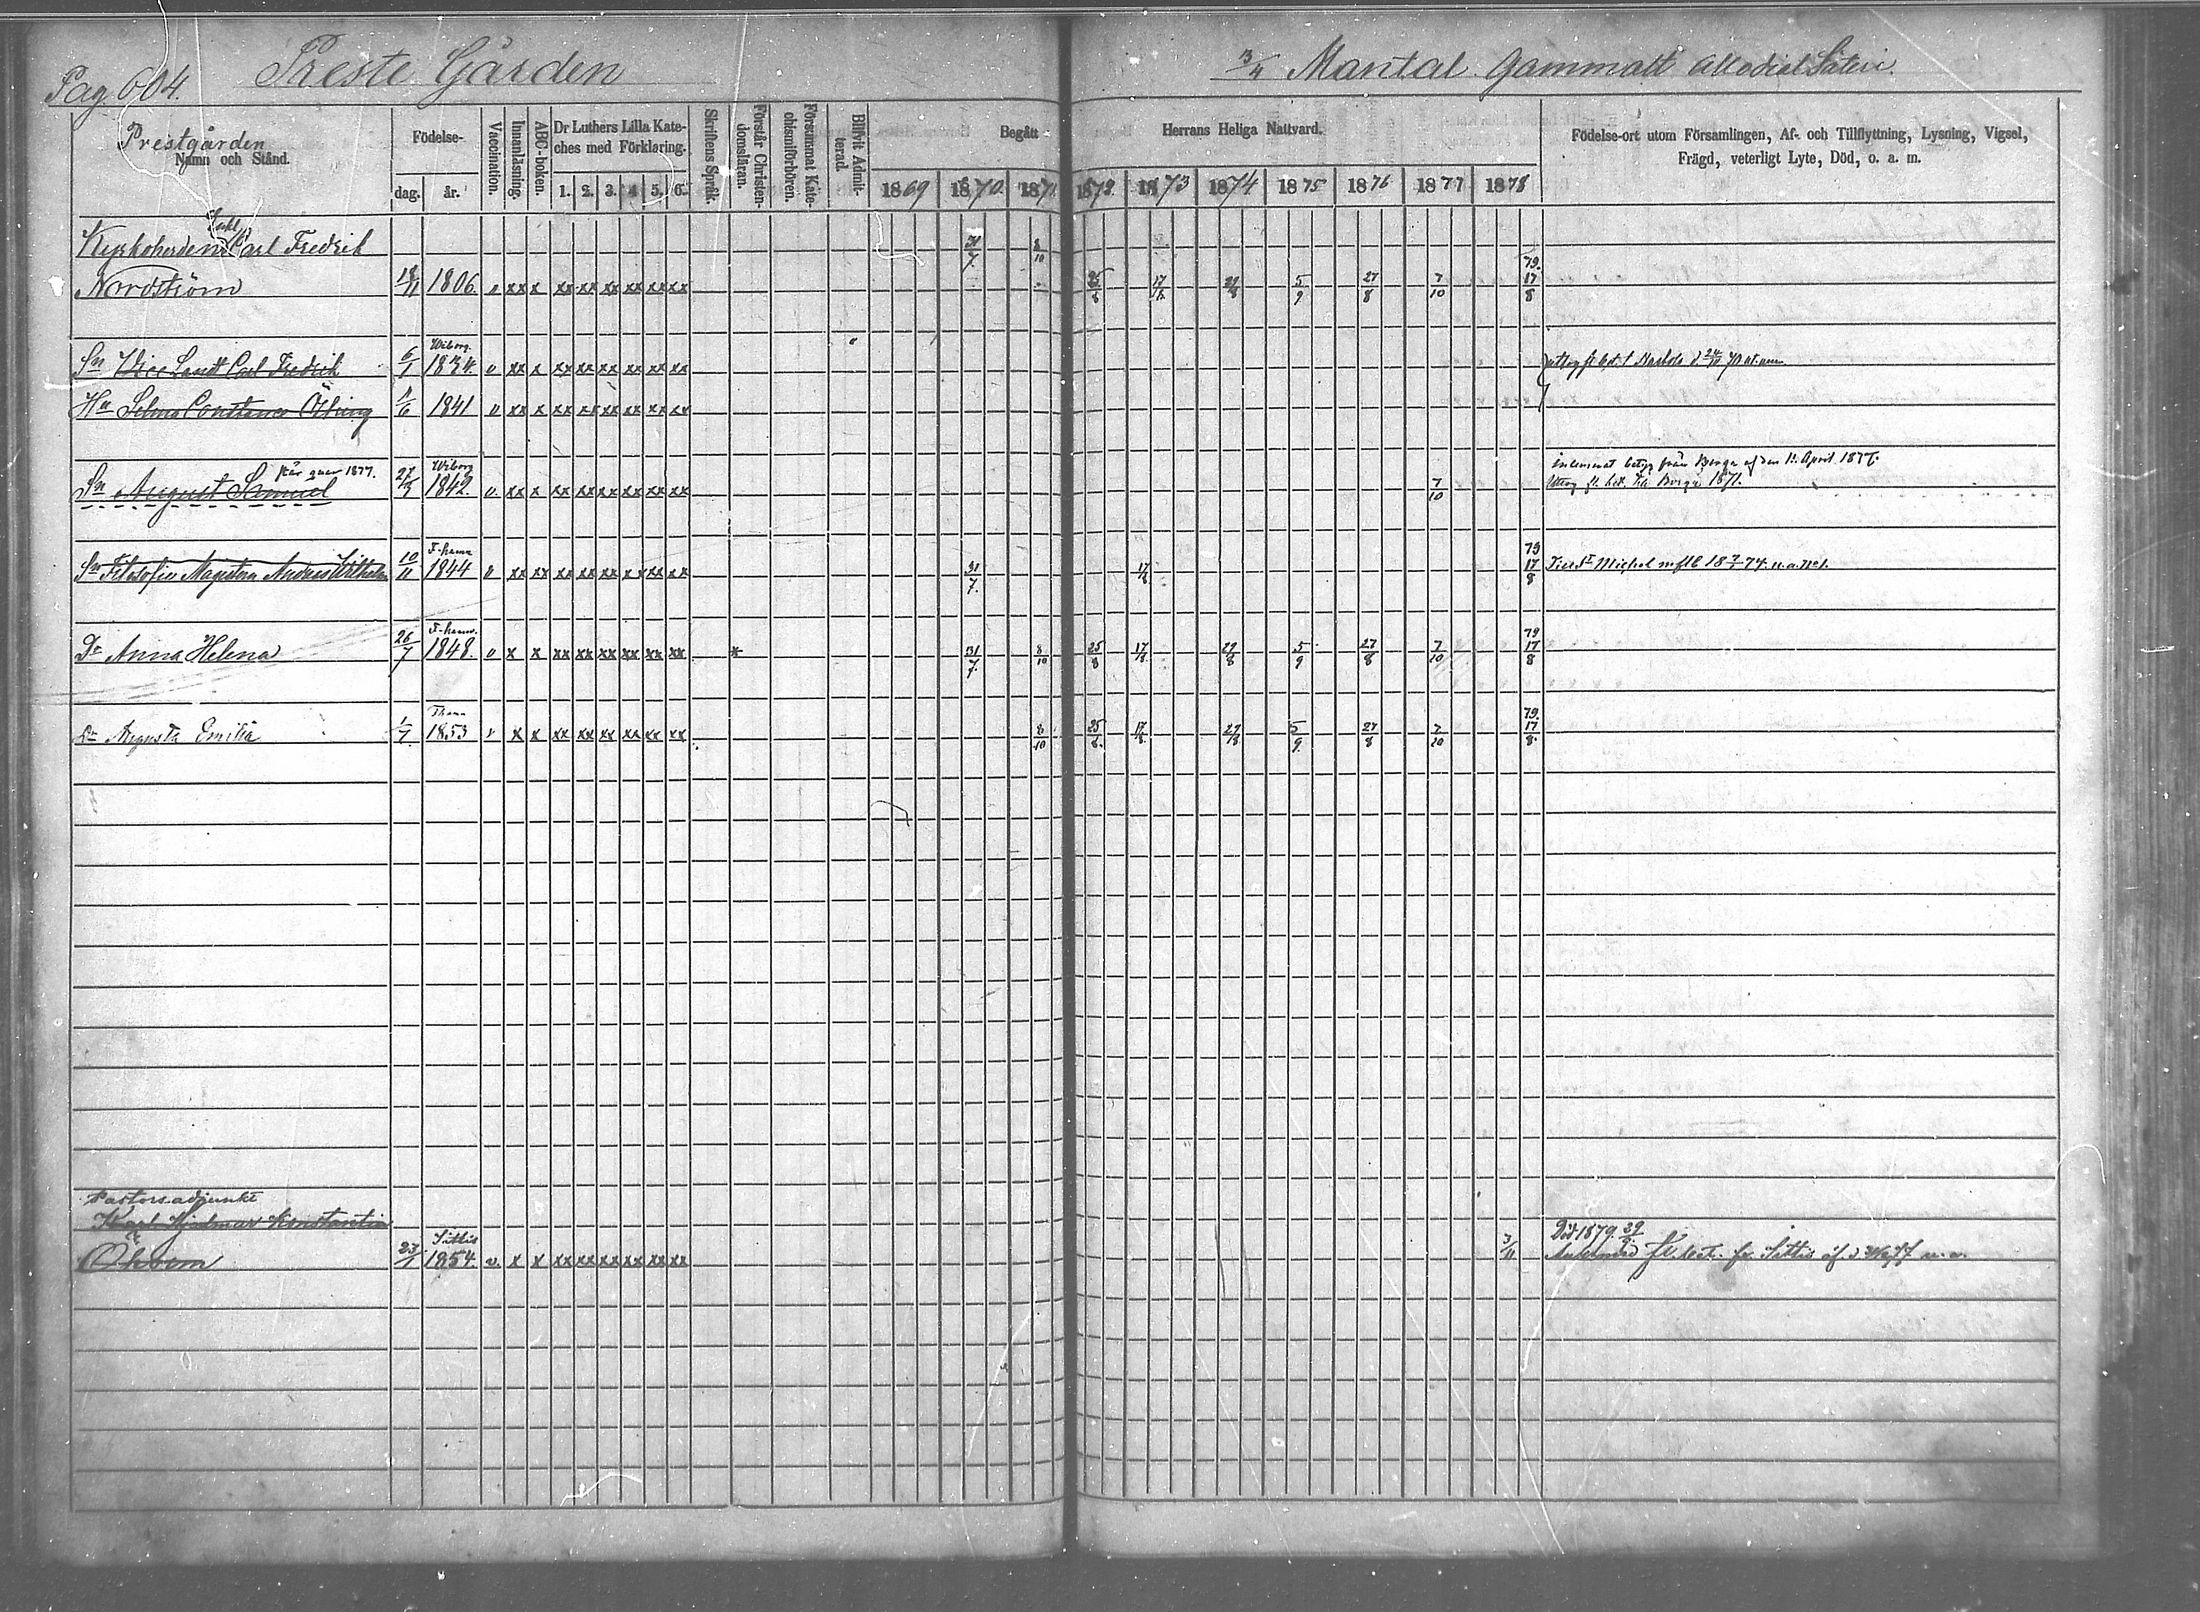 Pag. 604. Preste Gården 3/4 Mantal Gammalt Allodial Säteri.
Prestgården
Namn och Stånd.
Födelse-
dag. år.
Vaccination.
Innanläsning.
ABC-boken.
Dr Luthers Lilla Kate-
ches med Förklaring.
1. 2. 3. 4 5. 6.
Skriftens Språk.
Förstår Christen-
domsläran.
Försummat Kate-
chismiförhören.
Blifvit Admit-
terad.
Begått Herrans Heliga Nattvard.
1869 1870. 1871. 1872. 1873 1874 1875 1876 1877 1878
Födelse-ort utom Församlingen, Af- och Tillflyttning, Lysning, Vigsel,
Frägd, veterligt Lyte, Död, o. a. m.
Kyrkoherden Carl Fredrik 31/7. 8/10
79.
Nordström 18/11 1806. v xx x xx xx xx xx xx xx 25/8 17/8 29/8 5/9 27/8 7/10 17/8
Wiborg.
Sn Vice Landt Carl Fredrik 6/1 1834. v xx x xx xx xx xx xx xx
Hu Selma Constance 1/6 1841 v xx x xx xx xx xx xx xx
Wiborg betyg från Borgå af den April 1877.
Sn August Samuel 27/3 1842. v. xx x xx xx xx xx xx xx 7/10 Borgå 1871.
F-hamn 79
Sn Filosofie Magistern Andreas Wilhelm 10/11 1844 v xx xx xx xx xx xx xx 31/7. 17/8 17/8 Till St Michel m flb 18 74. u.a. No 1.
F-hamn. 79
Dr Anna Helena 26/7 1848. v x x xx xx xx xx xx xx x 31/7. 8/10 25/8 17/8 29/8 5/9 27/8 7/10 17/8
79.
Dr Augusta Emilia 1/7 1853 v x x xx xx xx xx xx xx 8/10 25/8. 17/8 29/8 5/9. 27/8 7/10 17/8.
Pastors adjunkt
Karl Hjalmar Konstantin
Sittis Död 1879. 29
Öhrom 23/1 1854. v. x x xx xx xx xx xx xx 3/11 fl. bet. fr. Sittis